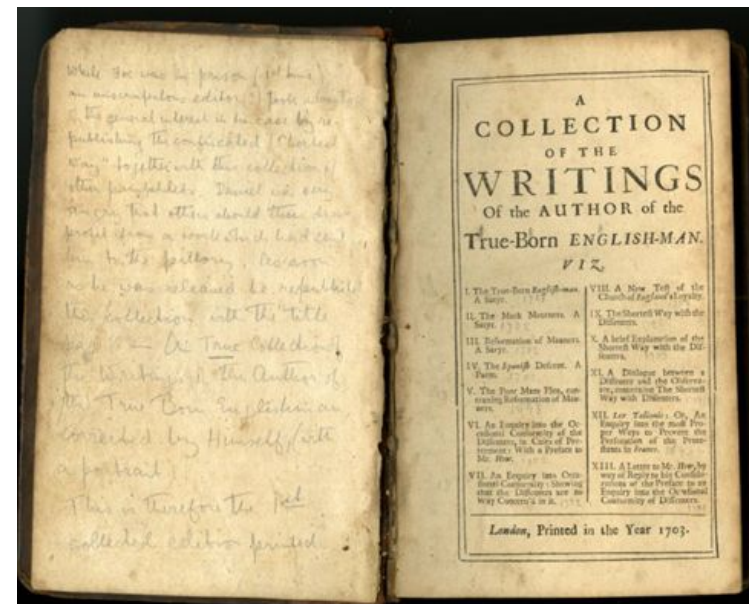 While Foe was in prison (1st time)
an unscrupulous editor took advantage
of the general interest in his case by re-
publishing the confiscated "Shortest
Way" together with this collection of
other pamphlets. Daniel was very
that others should
profit from a work which had sent
him to the pillory. As soon
as he was released he republished
this collection with the title
A True Collection of
the Writings of the Author of
the True Born Englishman
corrected by Himself, (with
a portrait)
This is therefore the 1st
collected edition printed
A
COLLECTION
OF THE
WRITINGS
Of the AUTHOR of the
True-Born ENGLISH-MAN.
VIZ,
I. The True-Born English-man.
A Satyr.
II. The Mock Mourners. A
Satyr.
III. Reformation of Manners.
A Satyr.
IV. The Spanish Descent. A
Poem.
V. The Poor Mans Plea, con-
cerning Reformation of Man-
ners.
VI. An Enquiry into the Oc-
casional Conformity of the
Dissenters, in Cases of Pre-
ferment: With a Preface to
Mr. How.
VII. An Enquiry into Occa-
sional Conformity: Shewing
that the Dissenters are no
Way Concern'd in it.
VIII. A New Test of the
Church of England's Loyalty.
IX. The Shortest Way with the
Dissenters.
X. A brief Explanation of the
Shortest Way with the Dis-
senters.
XI. A Dialogue between a
Dissenter and the Observa-
tor, concerning The Shortest
Way with Dissenters.
XII. Lex Talionis: Or, An
Enquiry into the most Pro-
per Ways to Prevent the
Persecution of the Prote-
stants in France.
XIII. A Letter to Mr. How, by
way of Reply to his Conside-
rations of the Preface to an
Enquiry into the Occasional
Conformity of Dissenters.
London, Printed in the Year 1703.